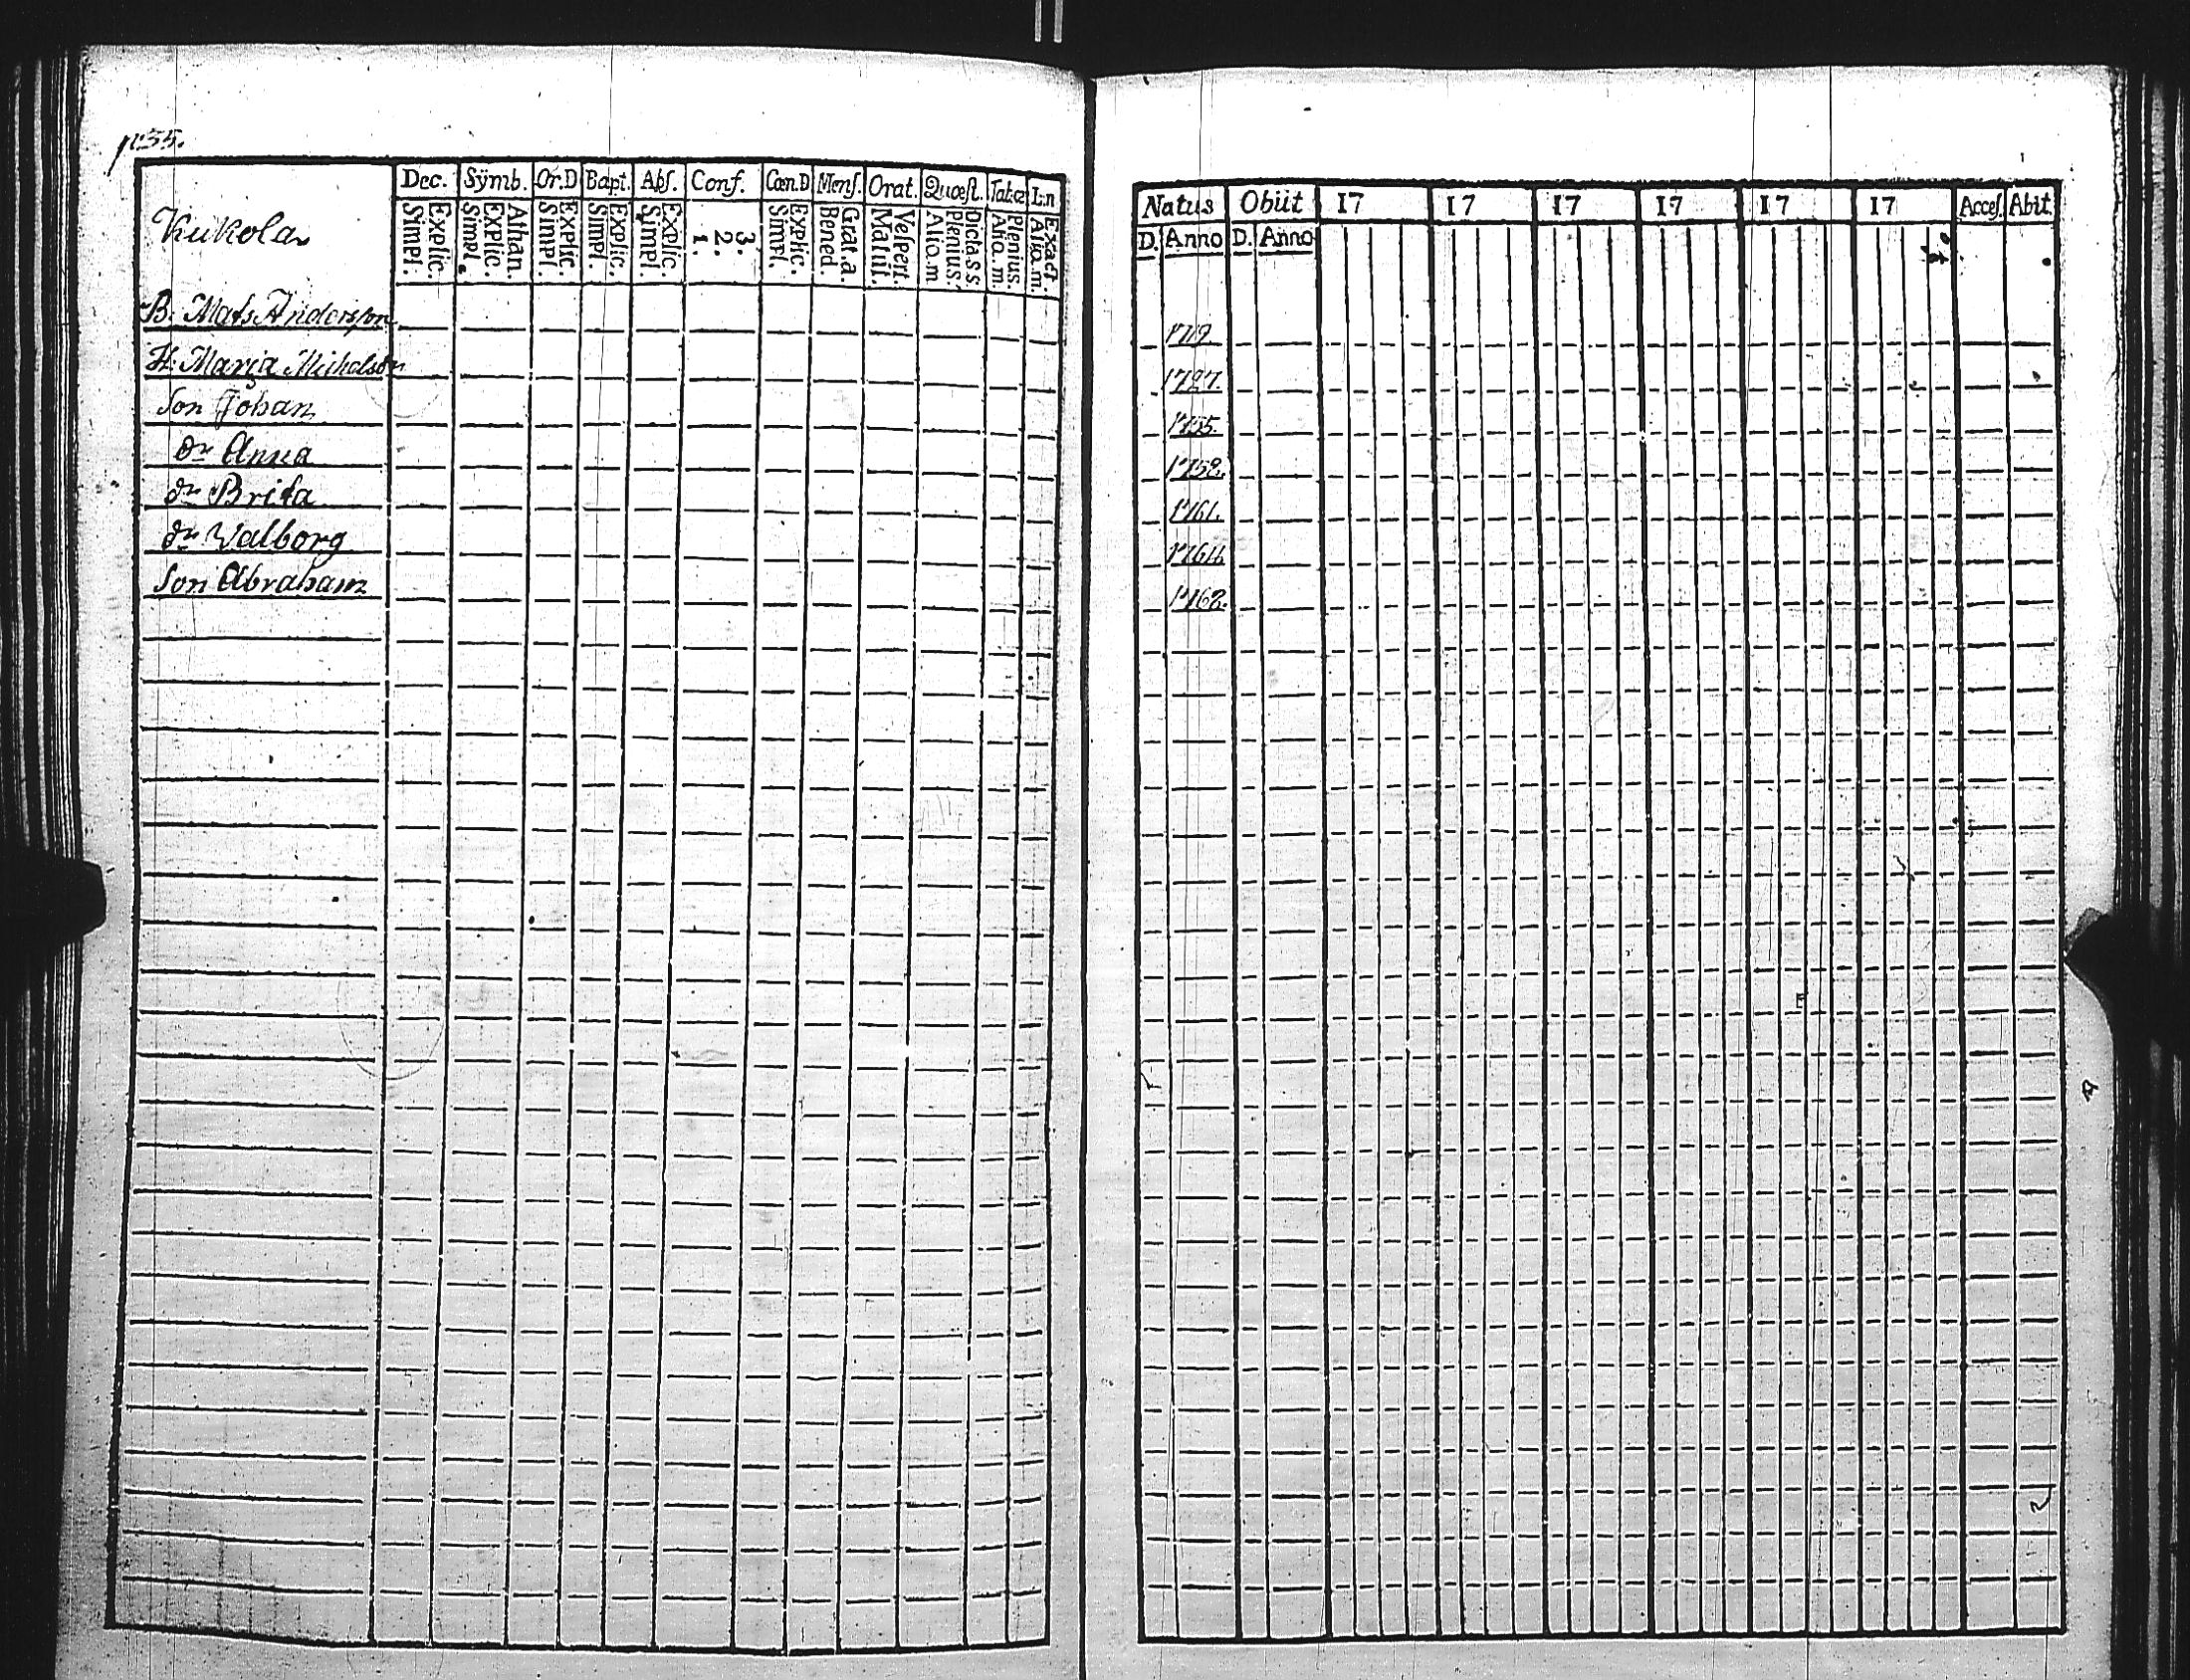 p. 35.
Dec. Sÿmb. Or.D Bapt. Abſ. Conf. Cœn.D Menſ. Orat. Quœſt. Tab.œ L:n
Simpl. Explic. Simpl. Explic. Athan. Simpl. Explic. Simpl. Explic. Simpl. Explic. 1. 2. 3. Simpl. Explic. Bened. Grat.a. Matut. Veſpert. Alio.m Plenius. Dicta.s.s. Alio.m. Plenius. Alio.m. Exact.
Kukola
B. Mats Andersson
H. Maria Michelsdr
Son Johan
dr Anna
dr Brita
dr Walborg
Son Abraham
Natus Obiit 17 17 17 17 17 17 Acceſ. Abit
D. Anno D. Anno
1719.
1727.
1755.
1758.
1761.
1764.
1768.